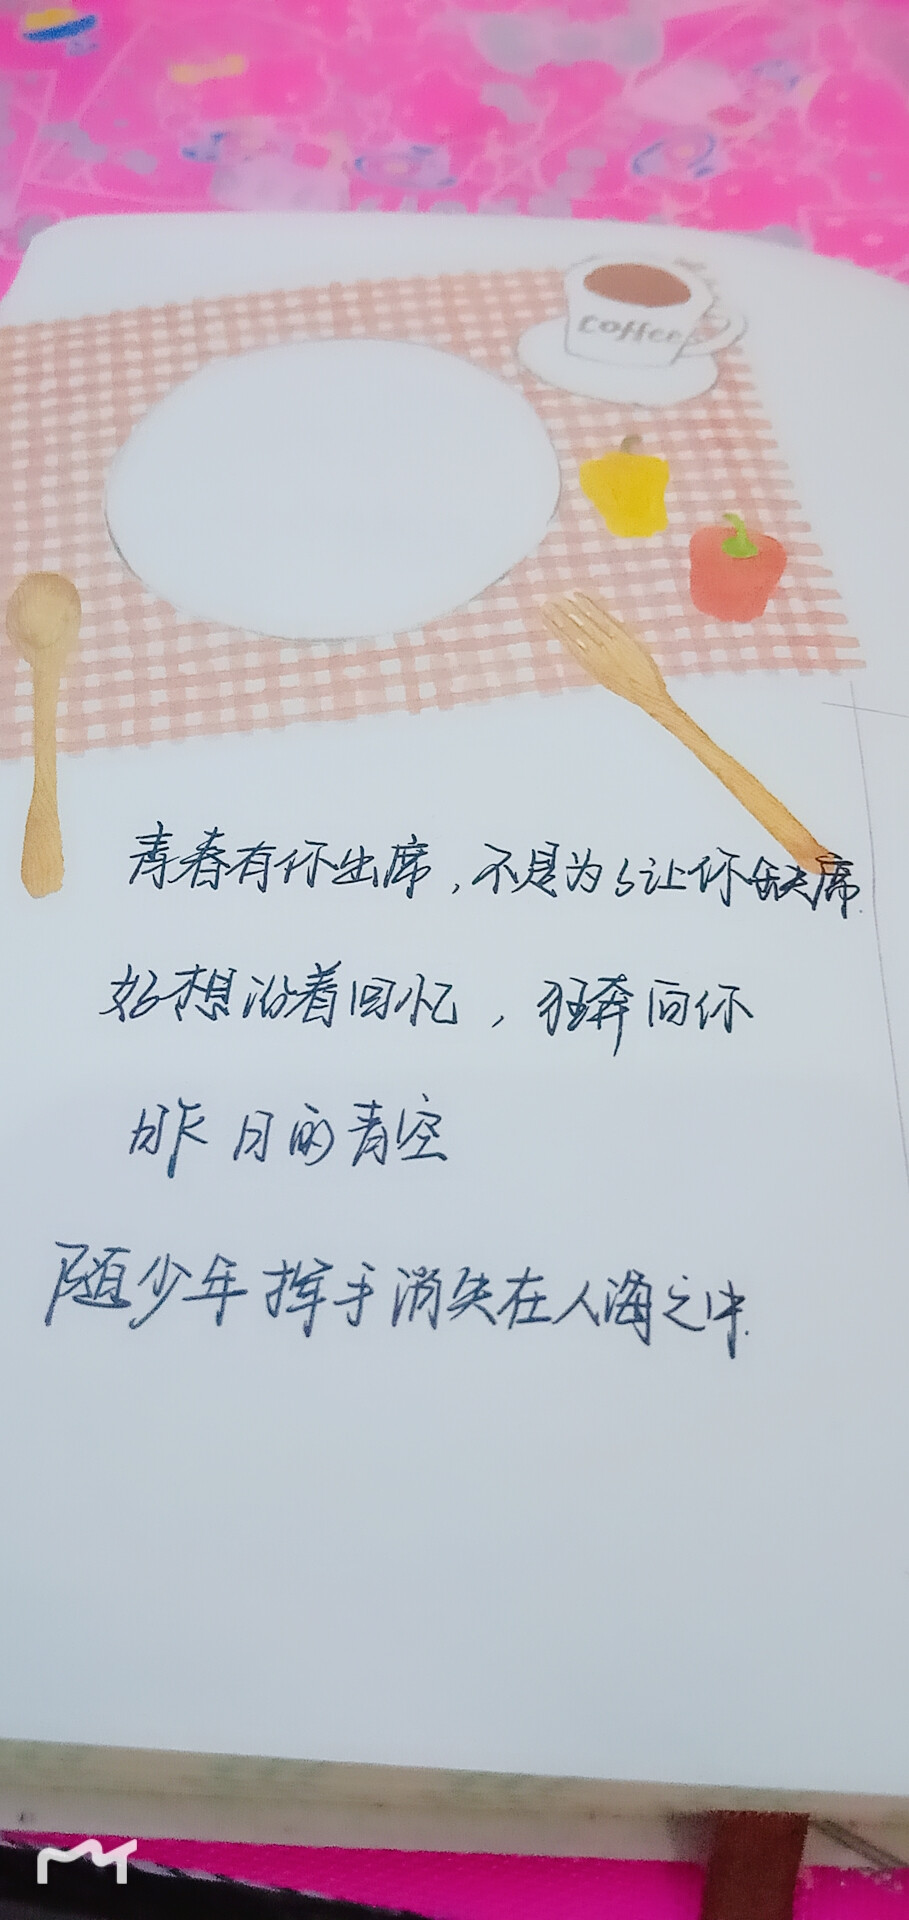 coffee
青春有你出席,不是为了让你缺席.
好想沿着回忆,狂奔向你
昨日的青空
随少年挥手消失在人海之中.